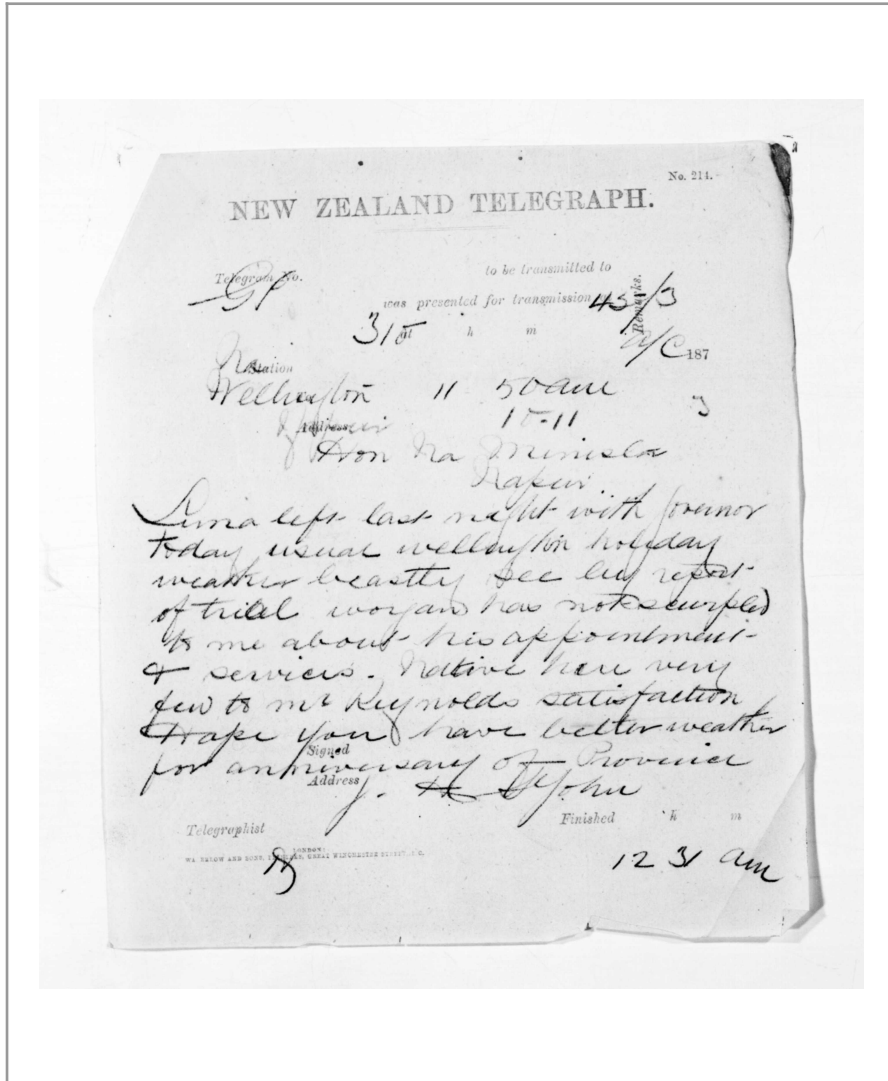 No. 214.
NEW ZEALAND TELEGRAPH.
Telegram No. to be transmitted to
was presented for transmission 43/3
Remarks.
31st h m
a/c 187
Station
Wellington 11 50 am
Address
Hon Na Minister
Napier
Luna left last night with Governor
Today usual wellington holiday
weather beastly See by report
of trial worgan has not scrupled
to me about his appointment
& services. Native here very
few to Mr Reynolds satisfaction
Hope you have better weather
for anniversary of Province
Signed
Address J. H St John
Telegraphist Finished h m
LONDON:
12 31 am